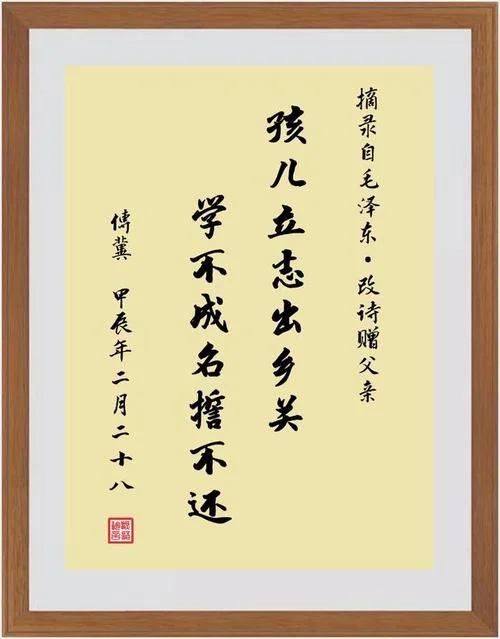 摘录自毛泽东·改诗赠父亲
孩儿立志出乡关
学不成名誓不还
傅冀 甲辰年二月二十八